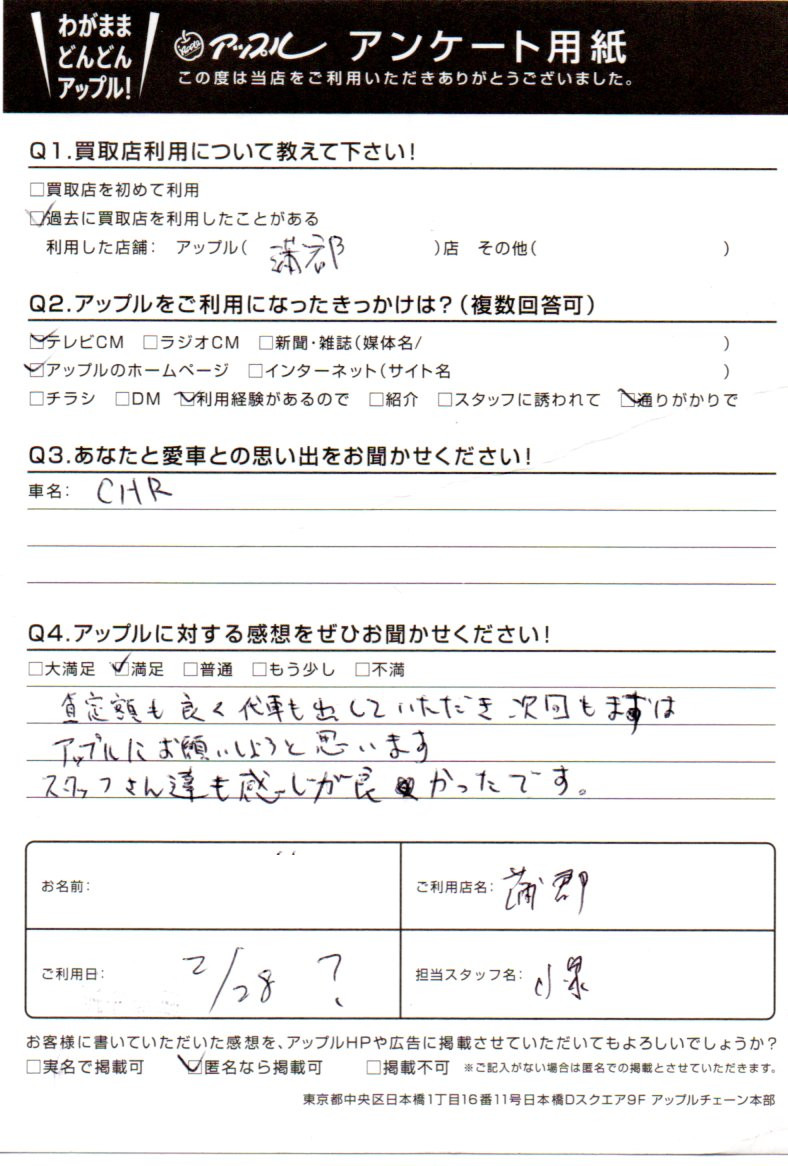 わがまま
どんどん
アップル!
アップル アンケート用紙
この度は当店をご利用いただきありがとうございました。
Q1.買取店利用について教えて下さい!
□買取店を初めて利用
☑過去に買取店を利用したことがある
利用した店舗: アップル( 蒲郡 )店 その他( )
Q2.アップルをご利用になったきっかけは?(複数回答可)
☑テレビCM □ラジオCM □新聞・雑誌(媒体名/ )
☑アップルのホームページ □インターネット(サイト名 )
□チラシ □DM ☑利用経験があるので □紹介 □スタッフに誘われて ☑通りがかりで
Q3.あなたと愛車との思い出をお聞かせください!
車名: CHR
Q4.アップルに対する感想をぜひお聞かせください!
□大満足 ☑満足 □普通 □もう少し □不満
査定額も良く代車も出していただき次回もまずは
アップルにお願いしようと思います
スタッフさん達も感じが良かったです。
お名前:
ご利用店名: 蒲郡
ご利用日: 2/28 ?
担当スタッフ名: 小泉
お客様に書いていただいた感想を、アップルHPや広告に掲載させていただいてもよろしいでしょうか?
□実名で掲載可 ☑匿名なら掲載可 □掲載不可 ※ご記入がない場合は匿名での掲載とさせていただきます。
東京都中央区日本橋1丁目16番11号日本橋Dスクエア9F アップルチェーン本部